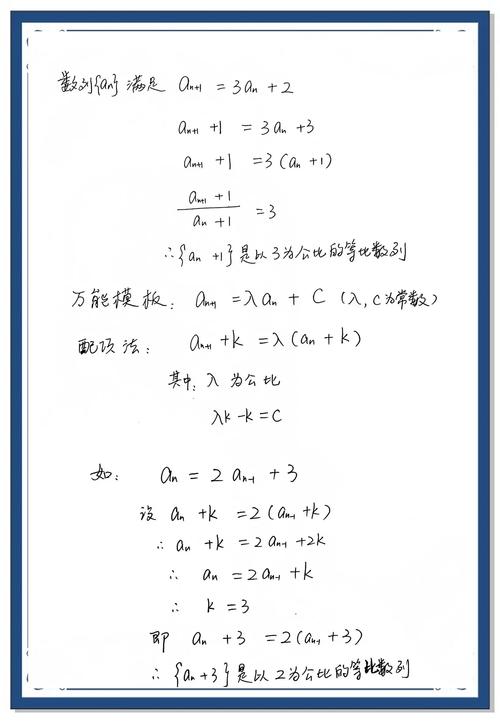 数列{an}满足 an+1 = 3an + 2
an+1 + 1 = 3an + 3
an+1 + 1 = 3(an + 1)
an+1 + 1 / an + 1 = 3
∴{an + 1}是以3为公比的等比数列
万能模板: an+1 = λan + C (λ, C为常数)
配项法: an+1 + k = λ(an + k)
其中: λ为公比
λk - k = C
如: an = 2an-1 + 3
设 an + k = 2(an-1 + k)
∴ an + k = 2an-1 + 2k
∴ an = 2an-1 + k
∴ k = 3
即 an + 3 = 2(an-1 + 3)
∴ {an + 3}是以2为公比的等比数列